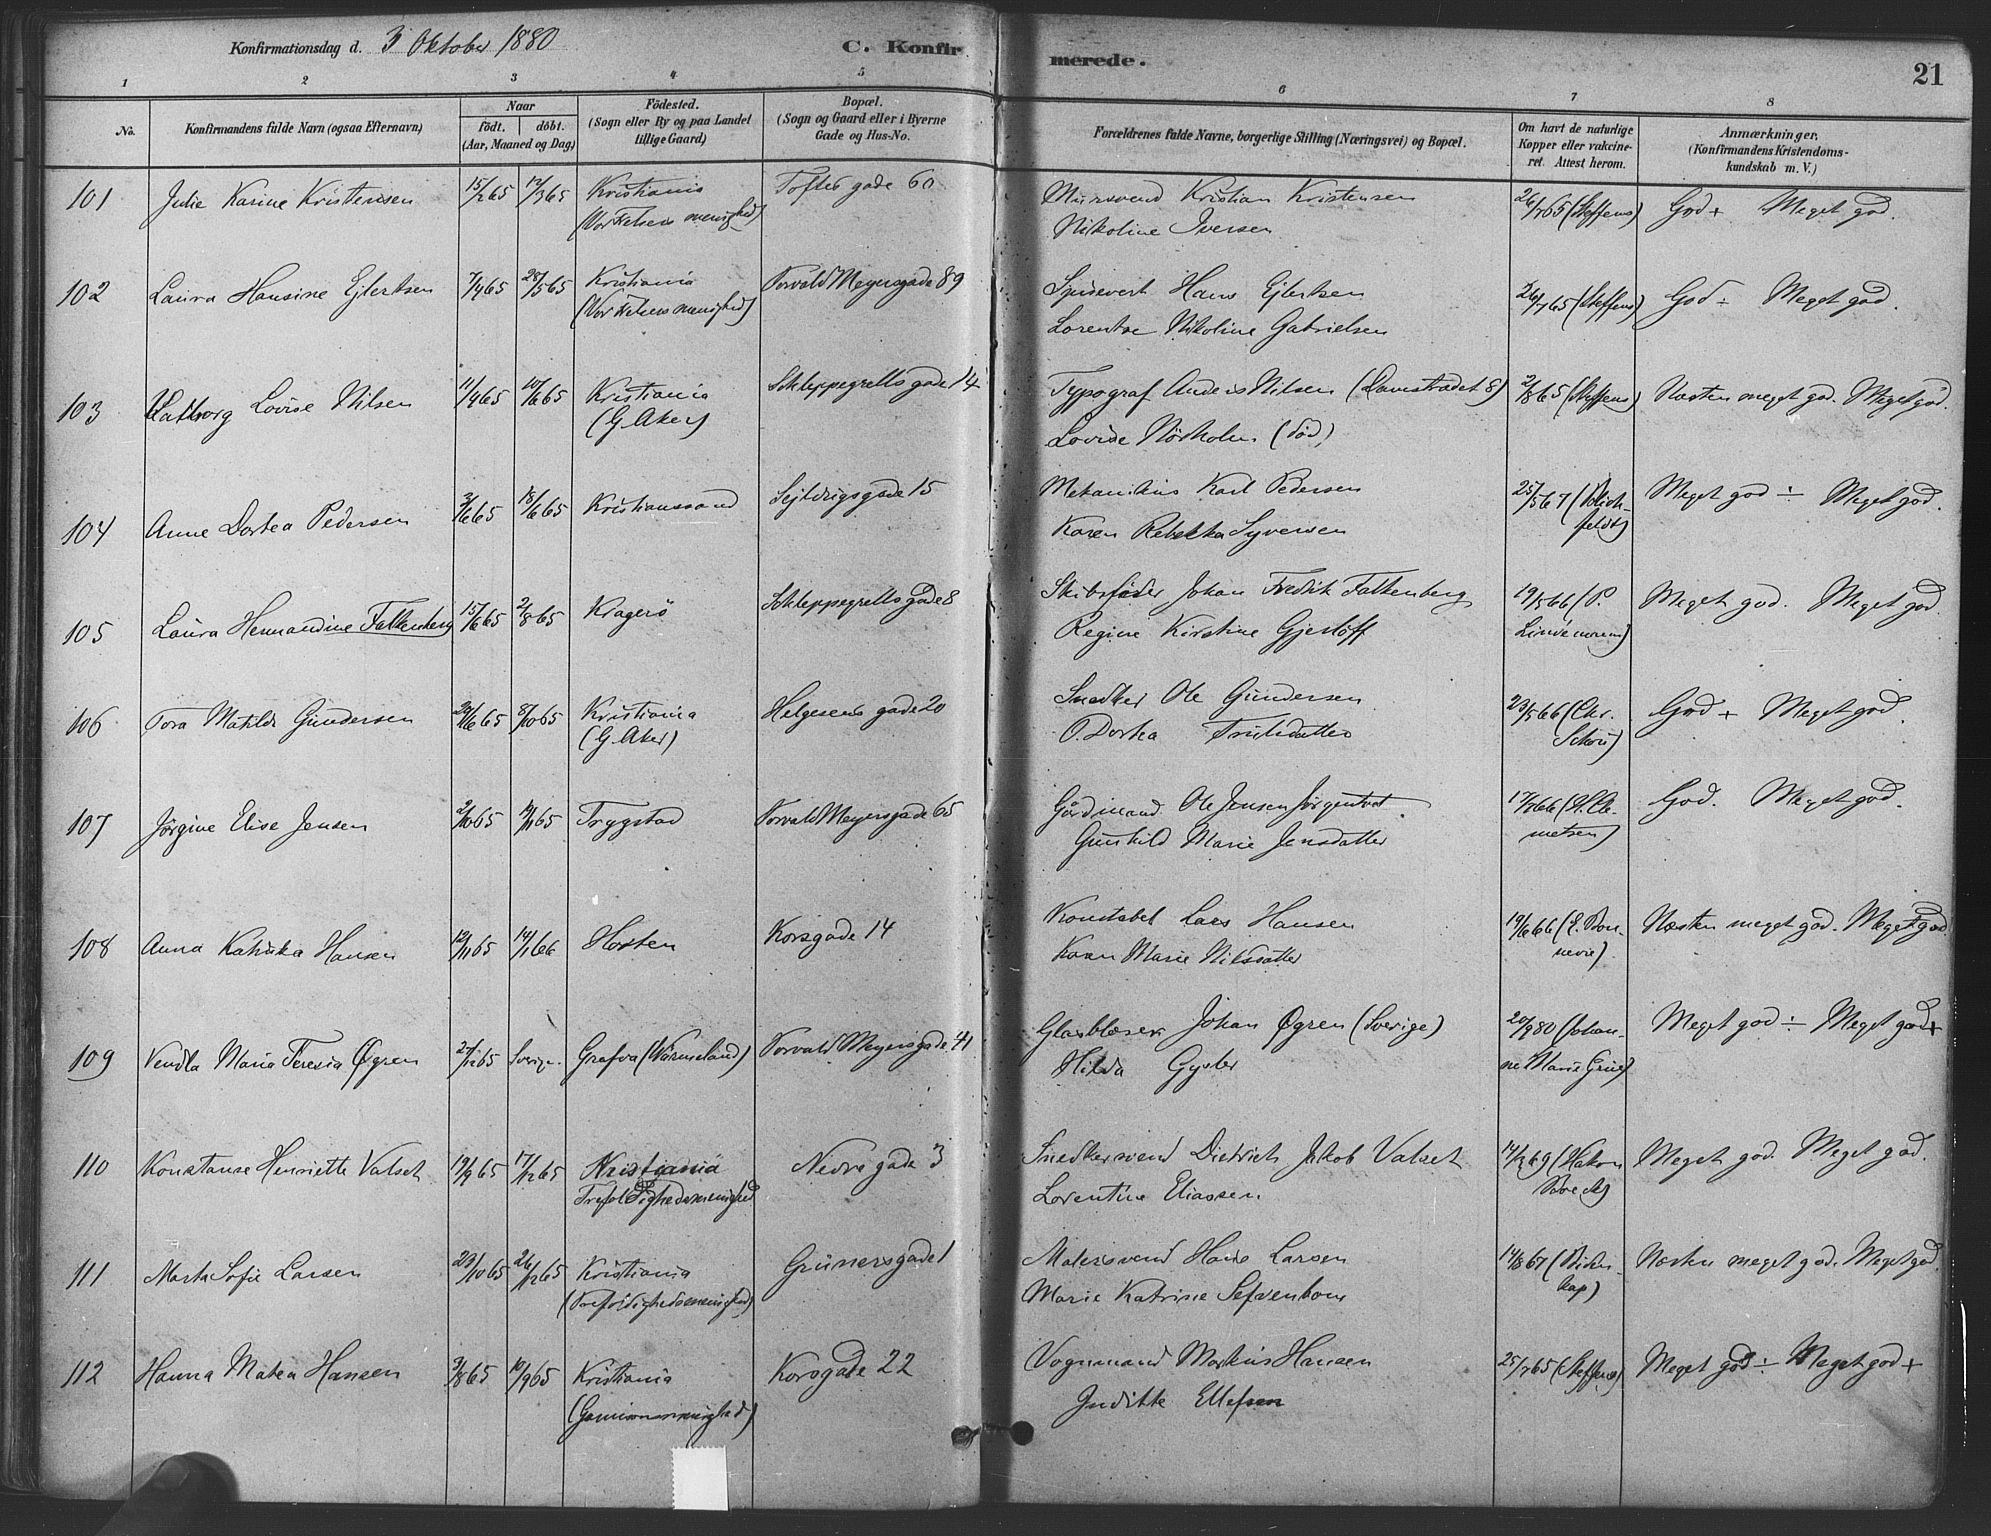 Konfirmationsdag d. 3 Oktober 1880
C. Konfirmerede.
21
1 2 3 4 5 6 7 8
No.
Konfirmandens fulde Navn (ogsaa Efternavn)
Naar
födt. döbt.
(Aar, Maaned og Dag)
Födested.
(Sogn eller By og paa Landet
tillige Gaard)
Bopæl.
(Sogn og Gaard eller i Byerne
Gade og Hus-No.
Forældrenes fulde Navne, borgerlige Stilling (Næringsvei) og Bopæl.
Om havt de naturlige
Kopper eller vakcine-
ret. Attest herom.
Anmærkninger.
(Konfirmandens Kristendoms-
kundskab m. V.)
101 Julie Karine Kristensen 15/2 65 12/3 65 Kristiania Toftes gade 60 Mursvend Kristian Kristensen 26/7 65 (Steffens) God + Meget god.
(Vor Frelsers menighed) Nikoline Iversen
102 Laura Hansine Ejlertsen 7/4 65 28/5 65 Kristiania Torvald Meyersgade 89 Hans Ejlertsen 26/7 65 (Steffens) God ÷ Meget god.
(Vor Frelsers menighed) Lorentse Nikoline Gabrielsen
103 Valborg Lovise Nilsen 11/4 65 10/6 65 Kristiania Schleppegrells gade 14 Typograf Anders Nilsen 2/8 65 (Steffens) Næsten meget god. Meget god.
(G. Aker) Lovise (död)
104 Anne Dortea Pedersen 3/6 65 18/6 65 Kristianssand Sejldugsgade 15 Mekanikus Karl Pedersen 25/5 67 Meget god ÷ Meget god.
Karen Rebekka Syversen
105 Laura Hermandine Falkenberg 15/6 65 2/8 65 Kragerö Schleppegrells gade 8 Johan Fredrik Falkenberg 19/5 66 (P. Meget god. Meget god.
Regine Kirstine Gjerlöff
106 Tora Matilde Gundersen 20/6 65 8/10 65 Kristiania Helgesens gade 20 Snedker Ole Gundersen 23/5 66 (Chr. God + Meget god.
(G. Aker) O. Dortea Schou)
107 Jörgine Elise Jensen 2/10 65 Trygstad Torvald Meyersgade 65 Gårdmand Ole Jensen 17/7 66 God. Meget god.
Gunhild Marie Jensdatter
108 Anna Hansen 12/11 65 14/1 66 Horten Korsgade 14 Konstabel Lars Hansen 19/6 66 (E. Bon- Næsten meget god. Meget god
Karen Marie Nilsdatter nevie)
109 Vendla Maria Teresia Øgren 27/12 65 Sverige. Grafva (Värmeland) Torvald Meyersgade 41 Glasblæser Johan Øgren (Sverige) 20/9 80 (Johan- Meget god ÷ Meget god +
Hilda ne Marie Grue)
110 Konstanse Henriette Valset 19/9 65 17/12 65 Kristiania Nedre gade 3 Snedkersvend Dietrich Jakob Valset (Hakon Meget god. Meget god.
Trefoldighedsmenighed Lorentine Eliassen Boeck)
111 Marta Sofie Larsen 23/10 65 26/12 65 Kristiania Grünersgade 1 Malersvend Hans Larsen 14/8 67 Næsten meget god. Meget god.
(Trefoldighedsmenighed) Marie Katrine
112 Hanna Matea Hansen 3/8 65 10/9 65 Kristiania Korsgade 22 Vognmand Markus Hansen 25/7 65 (Steffens) Meget god ÷ Meget god +
(Garnisonsmenighed) Juditte Ellefsen